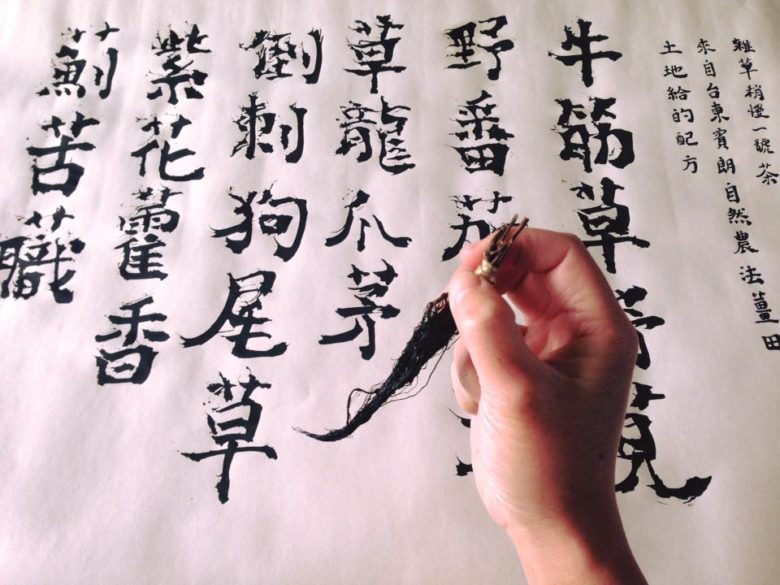 雜草稍慢一號茶
來自台東賓朗自然農法薑田
土地給的配方
牛筋草莧
野番茄
草龍爪茅
倒刺狗尾草
紫花藿香
薊苦蘵